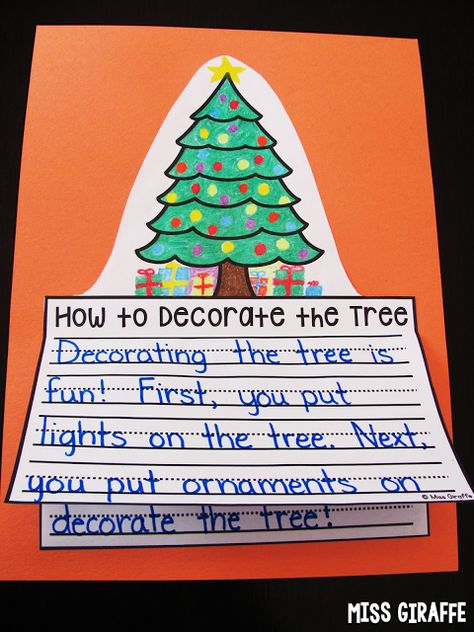 How to Decorate the Tree
Decorating the tree is
fun! First, you put
lights on the tree. Next,
you put ornaments on
© Miss Giraffe
decorate the tree!
MISS GIRAFFE